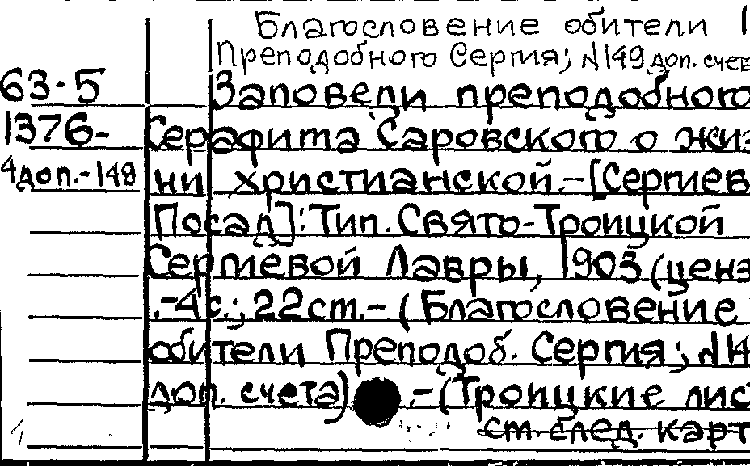 Благословение обители
Преподобного Сергия; №149 доп. счет
63-5 Заповеди преподобного
1376- Серафима Саровского о жиз
4 доп.-149 ни христианской.-[Сергиев
Посад]: Тип. Свято-Троицкой
Сергиевой Лавры, 1903 (ценз
.-4с.; 22см.- (Благословение
обители Преподоб. Сергия; №14
доп. счета) .-(Троицкие лис
см. след. карт